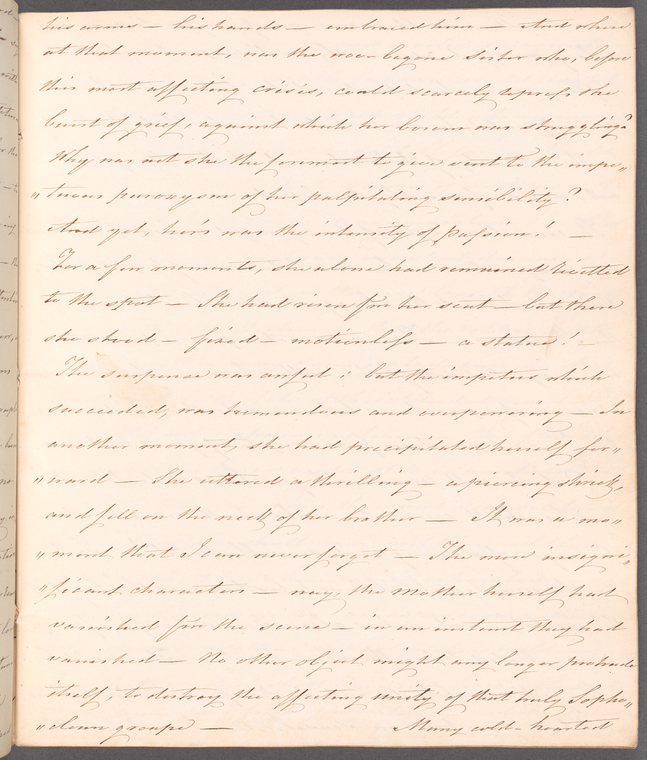 his arms — his hands — embraced him — And where
at that moment, was the woe-begone sister who, before
this most affecting crisis, could scarcely repress the
burst of grief, against which her bosom was struggling?
Why was not she the foremost to give vent to the impe"
"tuous paroxysm of her palpitating sensibility?
And yet, her's was the intensity of passion! —
For a few moments, she alone had remained rivetted
to the spot — She had risen from her seat — but there
she stood — fixed — motionless — a statue! —
The suspense was awful; but the impetus which
succeeded, was tremendous and overpowering — In
another moment, she had precipitated herself for"
"ward — She uttered a thrilling — a piercing shriek,
and fell on the neck of her brother — It was a mo"
"ment that I can never forget — The more insigni"
"ficant characters — nay, the Mother herself had
vanished from the scene — in an instant they had
vanished — No other object might any longer protrude
itself, to destroy the affecting unity of that truly Sopho"
"clean groupe — Many cold-hearted